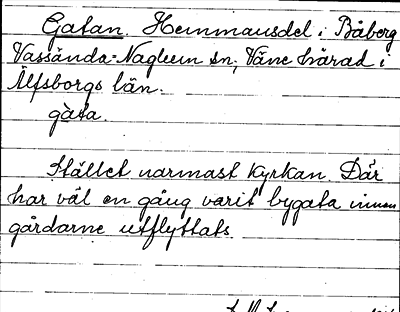 Gatan. Hemmansdel i Båberg
Vassända-Naglum sn, Väne härad i
Älfsborgs län.
gàta.
Stället närmast kyrkan. Där
har väl en gång varit bygata innan
gårdarne utflyttats.